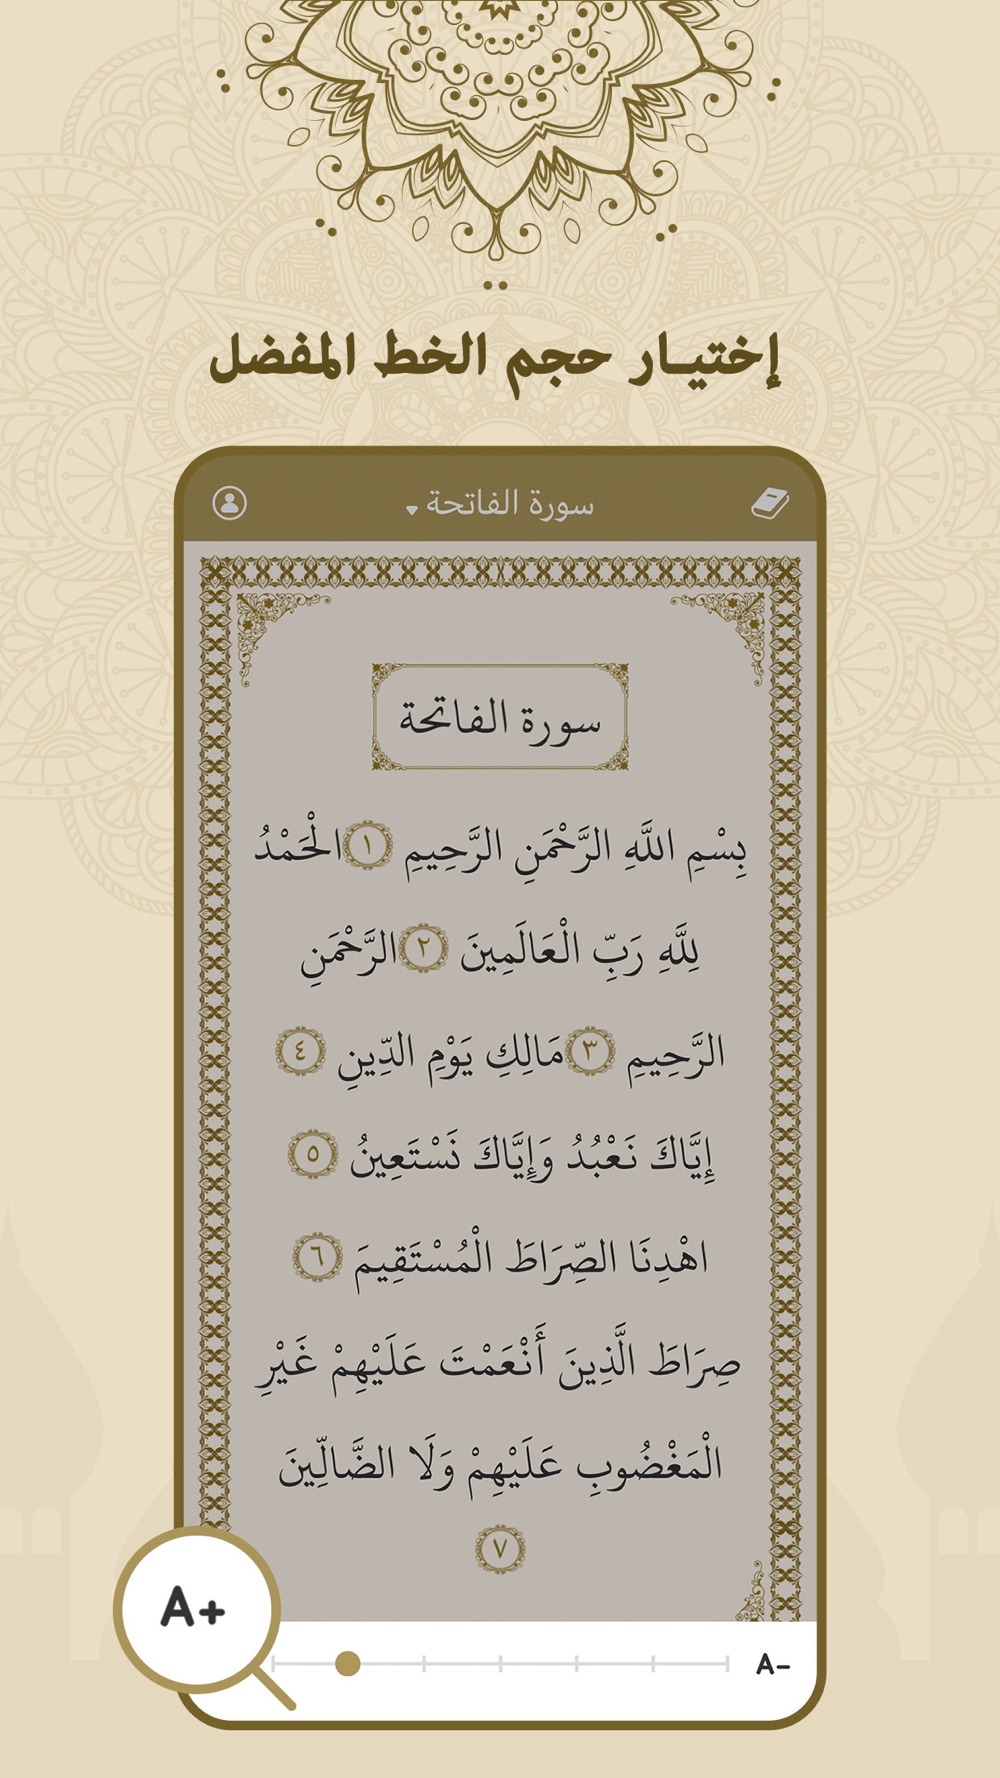 إختيـار حجم الخط المفضل
سورة الفاتحة
سورة الفاتحة
بِسْمِ اللَّهِ الرَّحْمَنِ الرَّحِيمِ ١ الْحَمْدُ
لِلَّهِ رَبِّ الْعَالَمِينَ ٢ الرَّحْمَنِ
الرَّحِيمِ ٣ مَالِكِ يَوْمِ الدِّينِ ٤
إِيَّاكَ نَعْبُدُ وَإِيَّاكَ نَسْتَعِينُ ٥
اهْدِنَا الصِّرَاطَ الْمُسْتَقِيمَ ٦
صِرَاطَ الَّذِينَ أَنْعَمْتَ عَلَيْهِمْ غَيْرِ
الْمَغْضُوبِ عَلَيْهِمْ وَلَا الضَّالِّينَ
٧
A-
A+